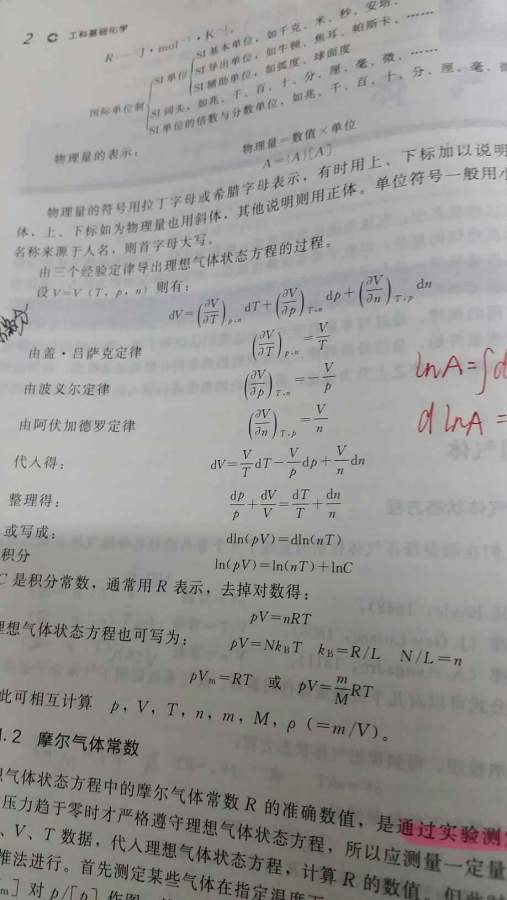 2 工科基础化学
R—— J·mol⁻¹·K⁻¹。
SI 基本单位, 如千克、米、秒、安培、
SI 单位 SI 导出单位, 如牛顿、焦耳、帕斯卡、……
SI 辅助单位, 如弧度、球面度
国际单位制
SI 词头, 如兆、千、百、十、分、厘、毫、微、……
SI 单位的倍数与分数单位, 如兆、千、百、十、分、厘、毫、微
物理量的表示: 物理量=数值×单位
A={A}[A]
物理量的符号用拉丁字母或希腊字母表示, 有时用上、下标加以说明
体, 上、下标如为物理量也用斜体, 其他说明则用正体。单位符号一般用小
名称来源于人名, 则首字母大写。
由三个经验定律导出理想气体状态方程的过程。
设 V=V (T, p, n) 则有:
dV=(∂V/∂T)p,n dT+(∂V/∂p)T,n dp+(∂V/∂n)T,p dn
由盖·吕萨克定律 (∂V/∂T)p,n=V/T
由波义尔定律 (∂V/∂p)T,n=-V/p
由阿伏加德罗定律 (∂V/∂n)T,p=V/n
lnA=∫d
dlnA=
代入得: dV=V/T dT-V/p dp+V/n dn
整理得: dp/p+dV/V=dT/T+dn/n
或写成: dln(pV)=dln(nT)
积分 ln(pV)=ln(nT)+lnC
C 是积分常数, 通常用 R 表示, 去掉对数得:
pV=nRT
理想气体状态方程也可写为: pV=NkBT kB=R/L N/L=n
pVm=RT 或 pV=m/M RT
此可相互计算 p, V, T, n, m, M, ρ (=m/V)。
1.2 摩尔气体常数
想气体状态方程中的摩尔气体常数 R 的准确数值, 是通过实验测
压力趋于零时才严格遵守理想气体状态方程, 所以应测量一定量
、V、T 数据, 代入理想气体状态方程, 计算 R 的数值。但
推法进行。首先测定某些气体在指定温度
m] 对 p/[p] 作图